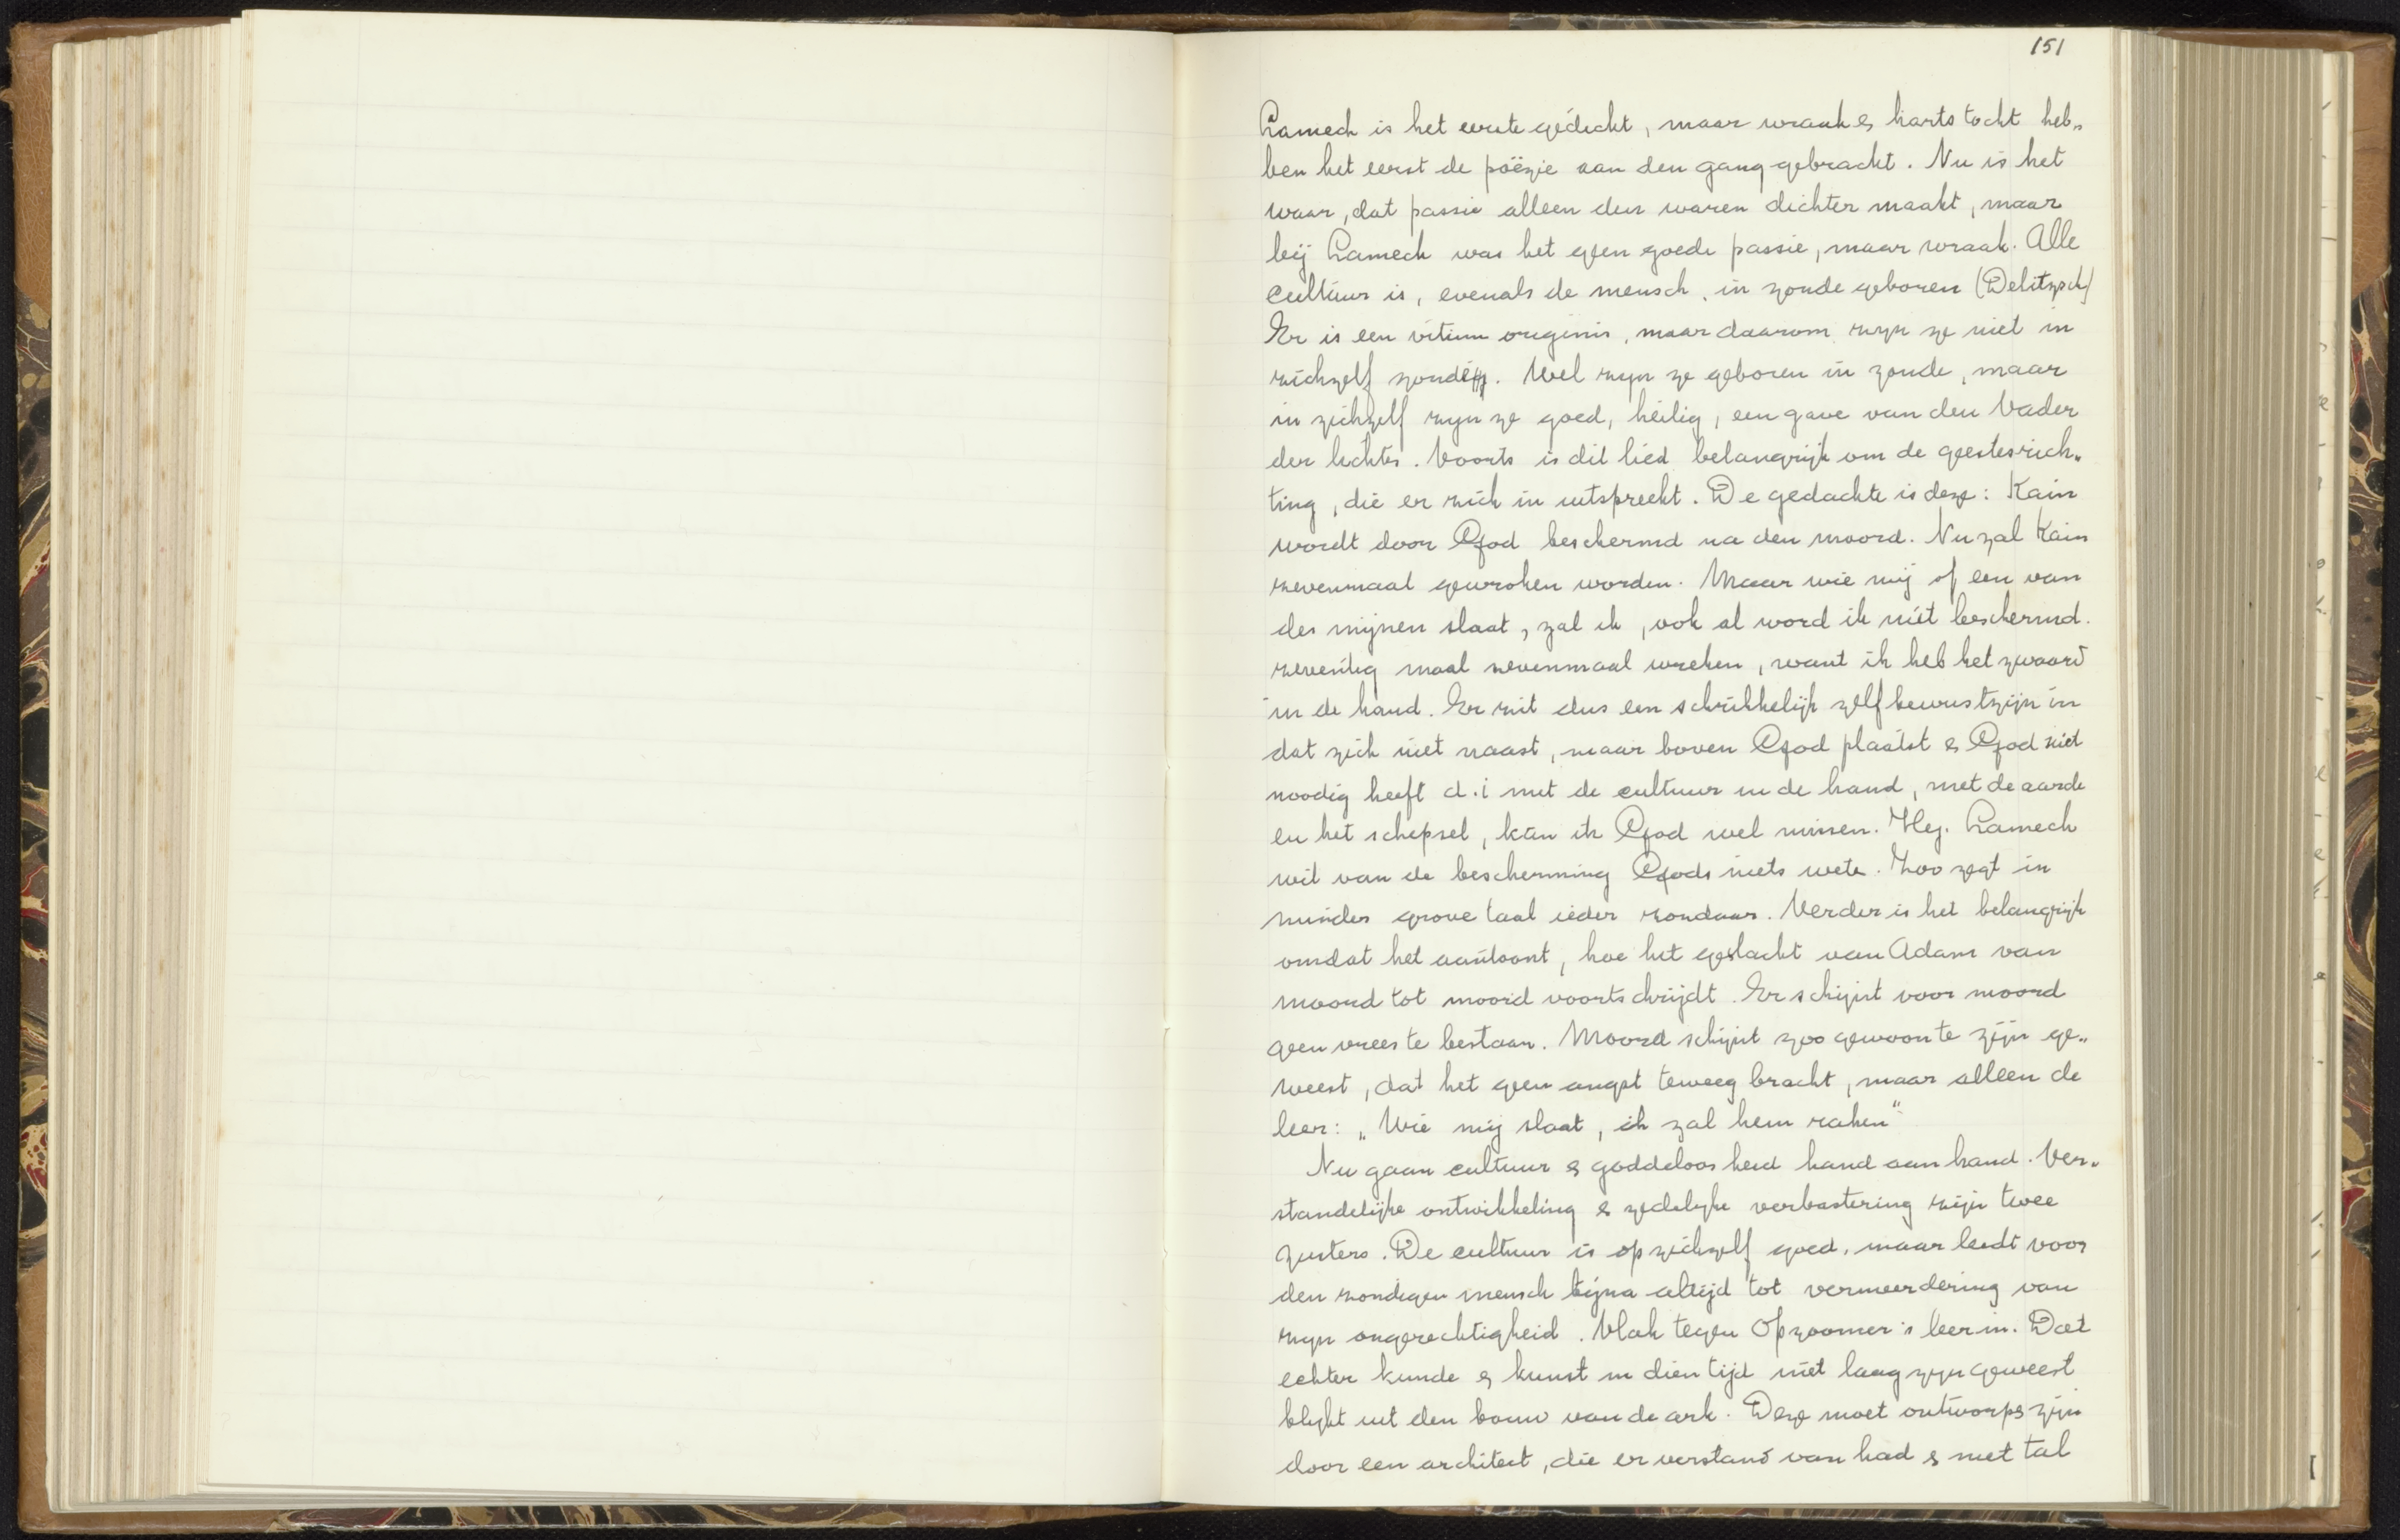 151
Lamech is het eerste gedicht, maar wraak & hartstocht heb„
ben het eerst de poëzie aan den gang gebracht. Nu is het
waar, dat passie alleen den waren dichter maakt, maar
bij Lamech was het geen goede passie, maar wraak. Alle
cultuur is, evenals de mensch, in zonde geboren (Delitzsch)
Er is een vitium originis, maar daarom zijn ze niet in
zichzelf zondig. Wel zijn ze geboren in zonde, maar
in zichzelf zijn ze goed, heilig, een gave van den Vader
der lichten. Voorts is dit lied belangrijk om de geestesrich„
ting, die er zich in uitspreekt. De gedachte is deze: Kain
wordt door God beschermd na den moord. Nu zal Kain
zevenmaal gewroken worden. Maar wie mij of een van
des mijnen slaat, zal ik, ook al word ik niet beschermd.
zeventig maal zevenmaal wreken, want ik heb het zwaard
in de hand. Er zit dus een schrikkelijk zelfbewustzijn in
dat zich niet naast, maar boven God plaatst & God niet
noodig heeft d.i met de cultuur in de hand, met de aarde
en het schepsel, kan ik God wel missen. Hij. Lamech
wil van de bescherming Gods niets wete. Zoo zegt in
minder grove taal ieder zondaar. Verder is het belangrijk
omdat het aantoont, hoe het geslacht van Adam van
moord tot moord voortschrijdt. Er schijnt voor moord
geen vrees te bestaan. Moord schijnt zoo gewoon te zijn ge„
weest, dat het geen angst teweeg bracht, maar alleen de
leer: „Wie mij slaat, ik zal hem raken“
Nu gaan cultuur & goddeloosheid hand aan hand. Ver„
standelijke ontwikkeling & zedelijke verbastering zijn twee
zusters. De cultuur is op zichzelf goed, maar leidt voor
den zondigen mensch bijna altijd tot vermeerdering van
zijn ongerechtigheid. Vlak tegen Opzoomer's leer in. Dat
echter kunde & kunst in dien tijd niet laag zijn geweest
blijkt uit den bouw van de ark. Deze moet ontworpen zijn
door een architect, die er verstand van had & met tal